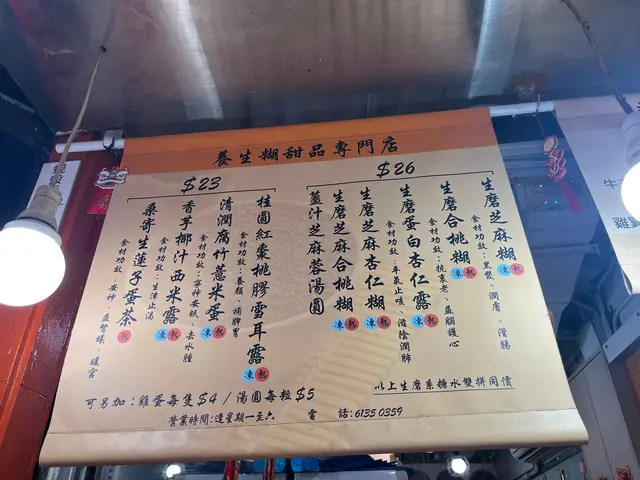 養生糊甜品專門店
$26
生磨芝麻糊 凍 熱
食材功效：黑髮、潤膚、滑腸
生磨合桃糊 凍 熱
食材功效：抗衰老、益腦護心
生磨蛋白杏仁露 凍 熱
食材功效：平氣止咳、滋陰潤肺
生磨芝麻杏仁糊 凍 熱
生磨芝麻合桃糊 凍 熱
薑汁芝麻蓉湯圓
以上生磨系糖水雙拼同價
$23
桂圓紅棗桃膠雪耳露 凍 熱
食材功效：養顏、補脾胃
清潤腐竹薏米蛋 凍 熱
食材功效：寧神安眠、去水腫
香芋椰汁西米露 凍 熱
食材功效：生津止渴
桑寄生蓮子蛋茶 熱
食材功效：安神、益腎
可另加：雞蛋每隻$4/湯圓每粒$5
營業時間：逢星期一至六
電話：6135 0359
牛
雞